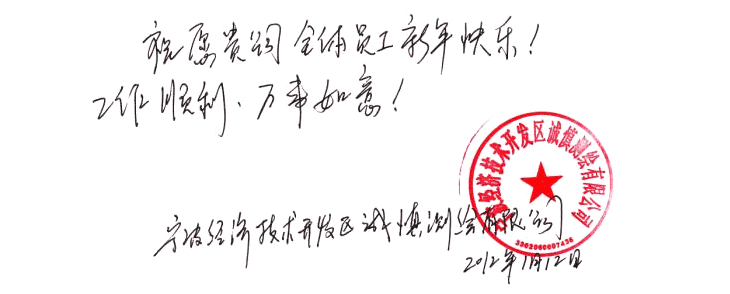 祝愿贵司全体员工新年快乐！
工作顺利、万事如意！
宁波经济技术开发区诚慎测绘有限公司
2012年1月12日
经济技术开发区诚慎测绘有限公司
3302060007436